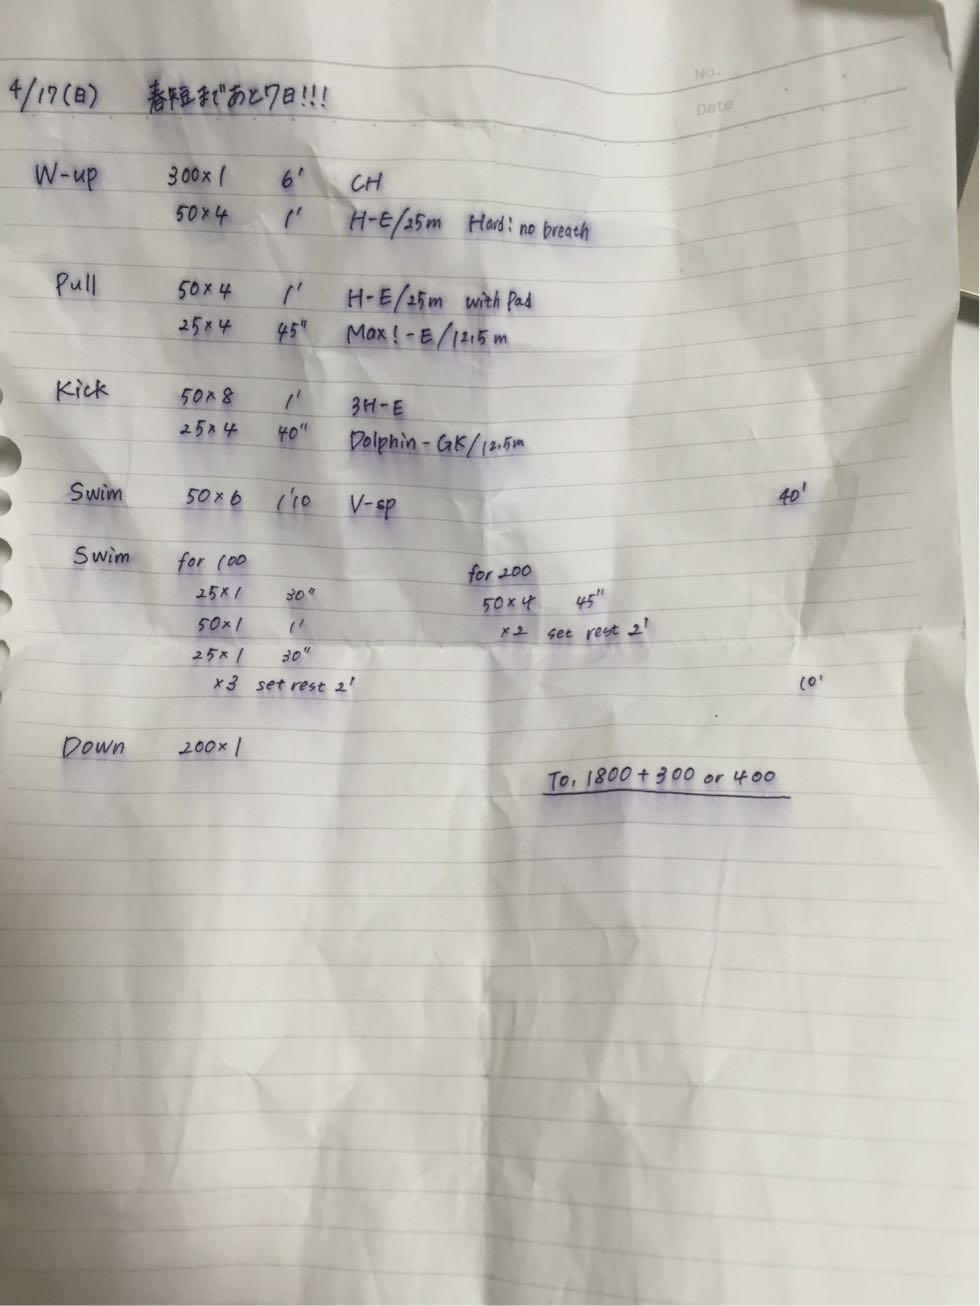 No.
Date
4/17(日) 春短まであと7日!!!
W-up 300×1 6' CH
50×4 1' H-E/25m Hard: no breath
Pull 50×4 1' H-E/25m with Pad
25×4 45" Max!-E/12.5m
Kick 50×8 1' 3H-E
25×4 40" Dolphin-GK/12.5m
Swim 50×6 1'10 V-sp 40'
Swim for 100
25×1 30"
50×1 1'
25×1 30"
×3 set rest 2'
for 200
50×4 45"
×2 set rest 2'
10'
Down 200×1
To, 1800+300 or 400